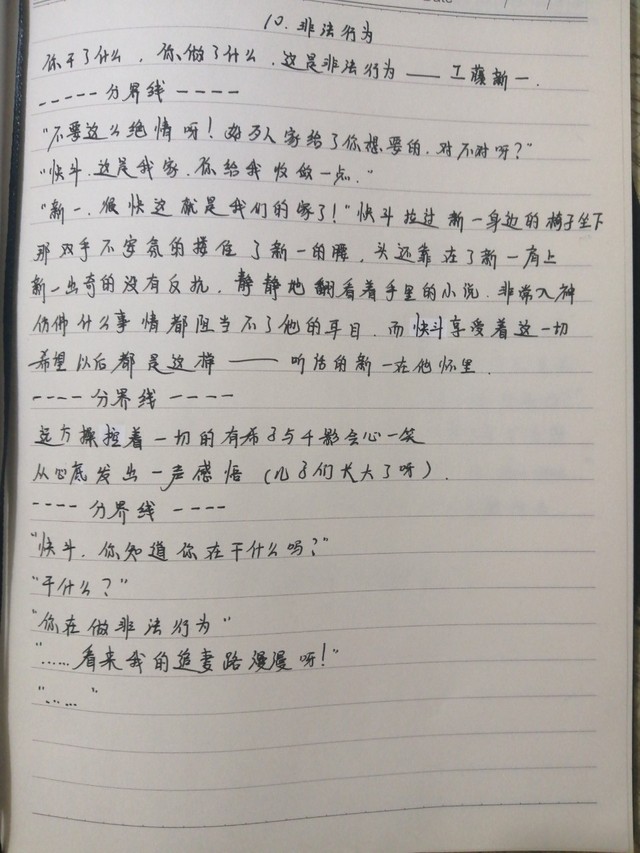 Date
10. 非法行为
你干了什么，你做了什么，这是非法行为——工藤新一.
-----分界线----
"不要这么绝情呀！好歹人家给了你想要的.对不对呀？"
"快斗.这是我家.你给我收敛一点."
"新一.很快这就是我们的家了！"快斗拉过新一身边的椅子坐下
那双手不安氛的搂住了新一的腰，头还靠在了新一肩上
新一出奇的没有反抗.静静地翻看着手里的小说.非常入神
仿佛什么事情都阻当不了他的耳目.而快斗享爱着这一切
希望以后都是这样——听话的新一在他怀里.
----分界线----
远方操控着一切的有希子与千影会心一笑
从心底发出一声感悟（儿子们长大了呀）.
----分界线----
"快斗.你知道你在干什么吗？"
"干什么？"
"你在做非法行为"
"……看来我的追妻路漫漫呀！"
"……"